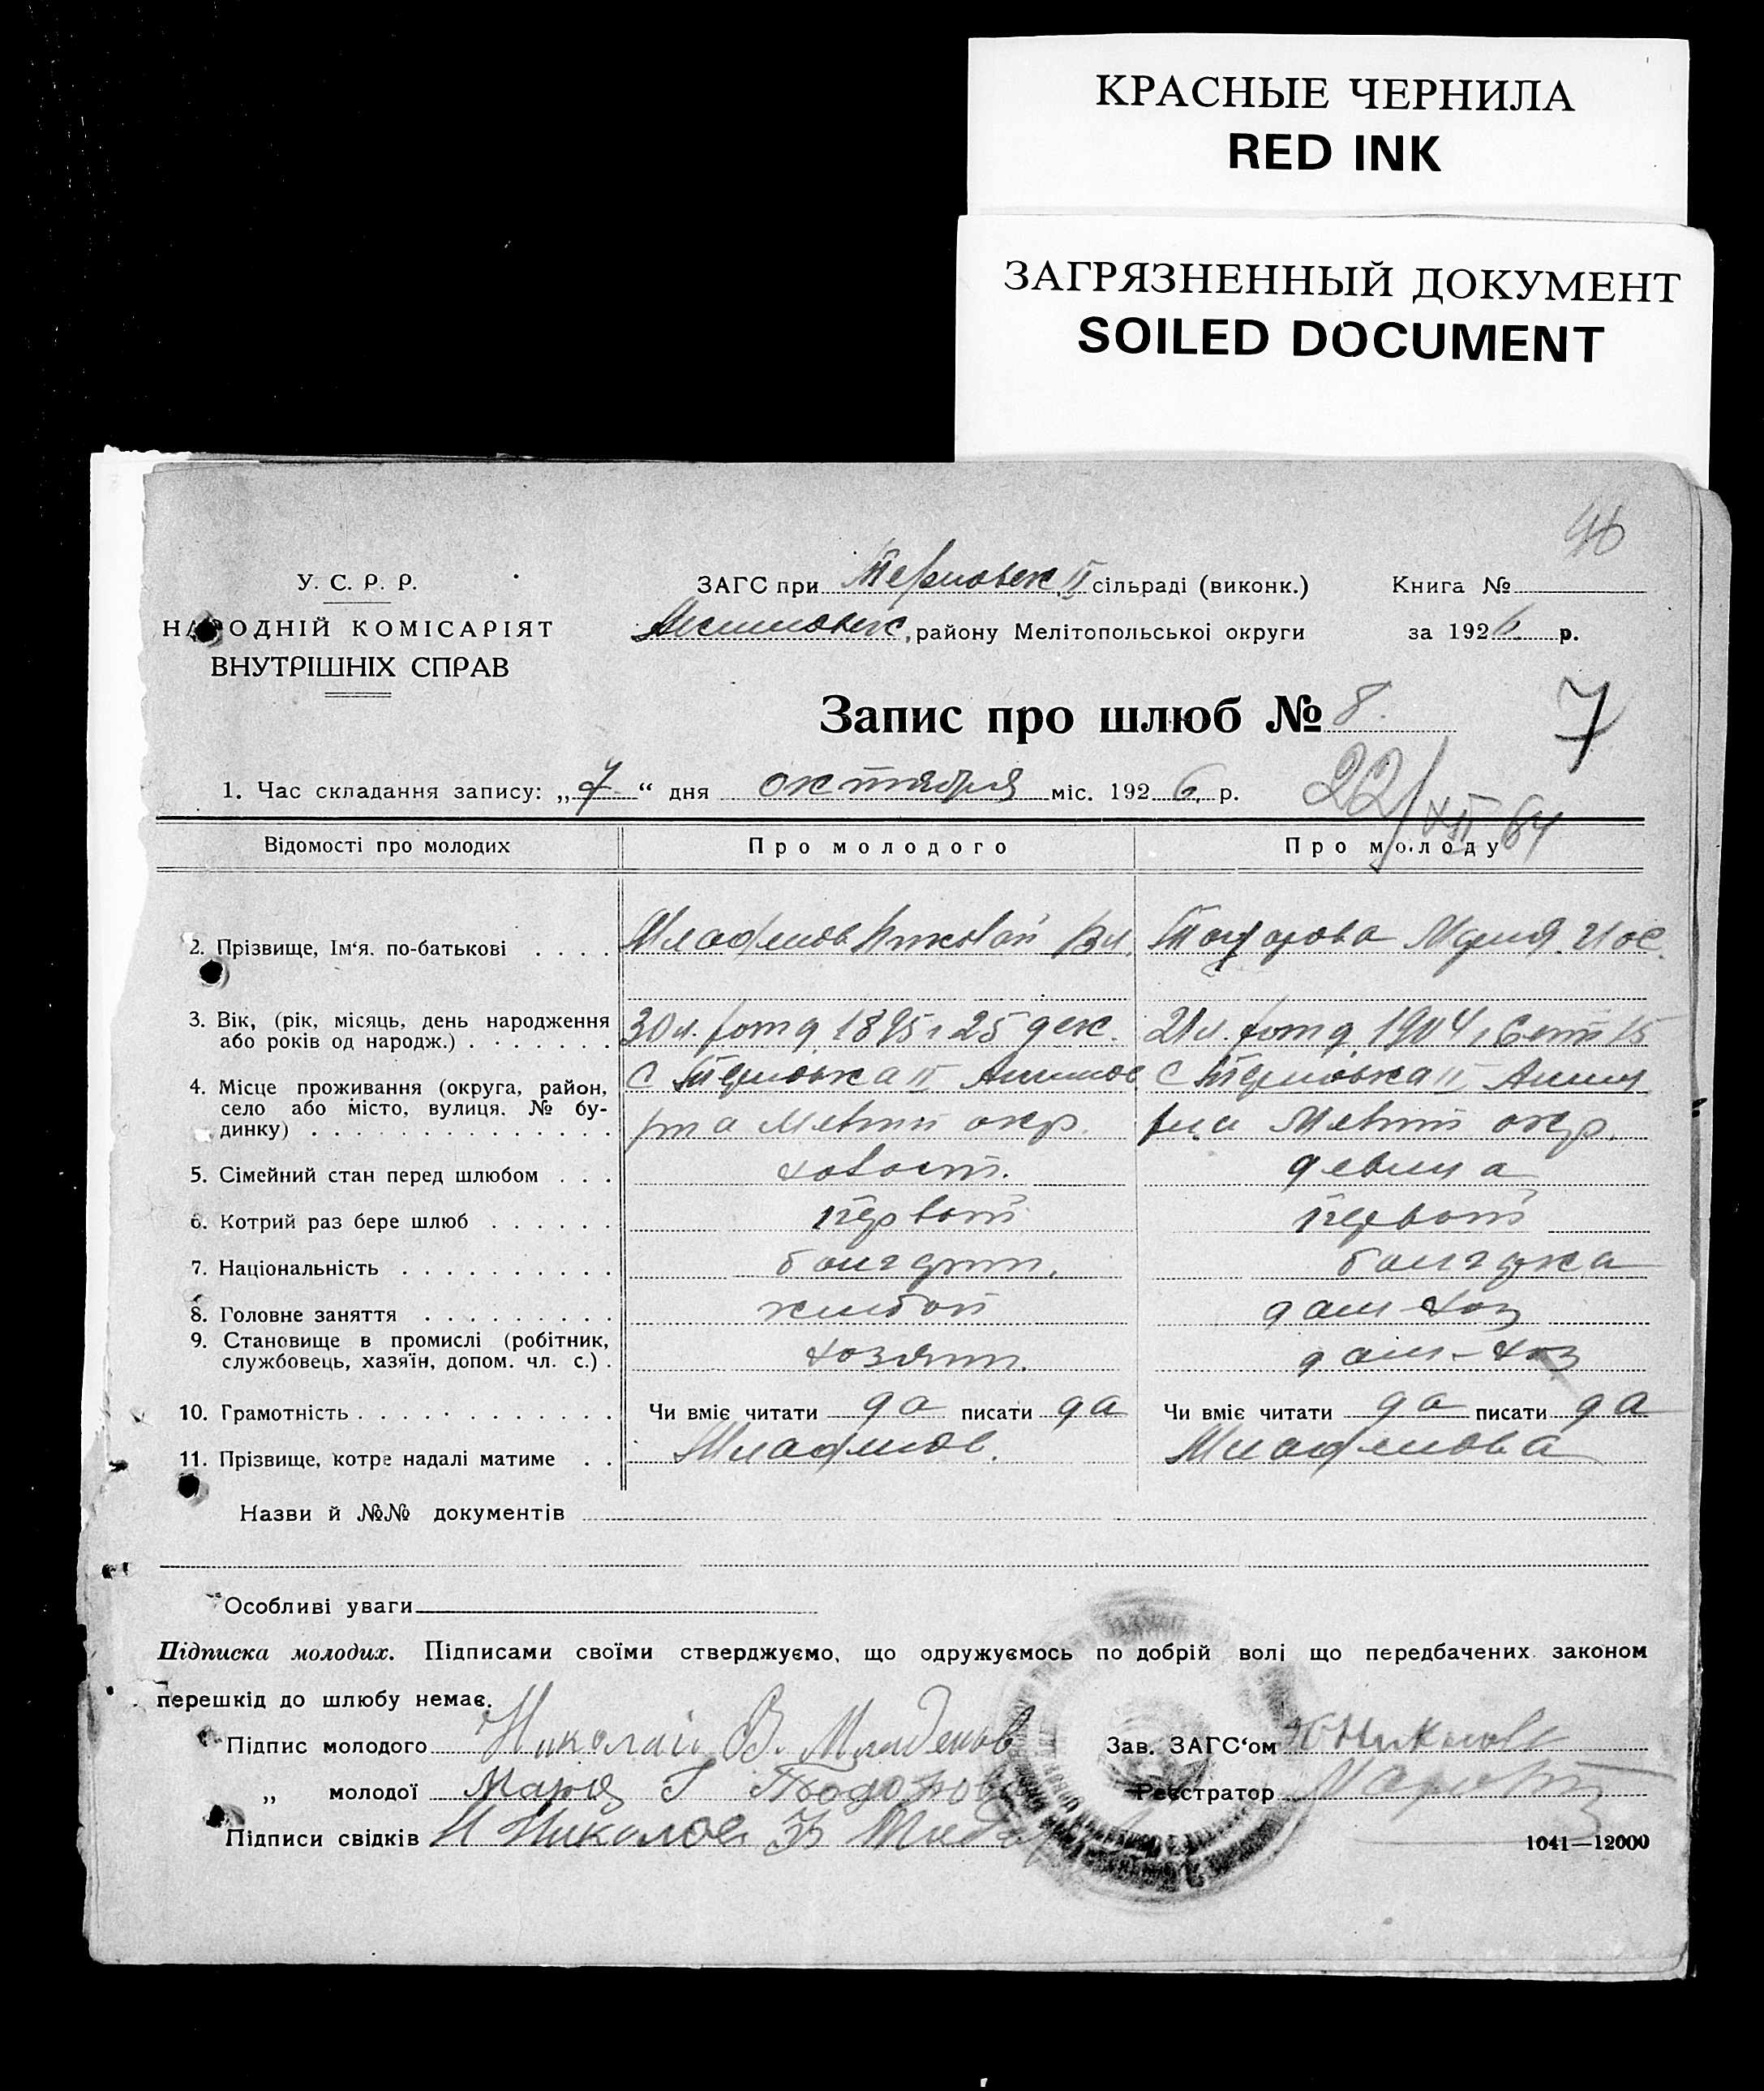 КРАСНЫЕ ЧЕРНИЛА
RED INK
ЗАГРЯЗНЕННЫЙ ДОКУМЕНТ
SOILED DOCUMENT
У. С. Р. Р.
НАРОДНІЙ КОМІСАРІЯТ
ВНУТРІШНІХ СПРАВ
ЗАГС при Терновск II сільраді (виконк.)
району Мелітопольської округи
Книга №
за 1926 р.
Запис про шлюб № 8.
7
1. Час складання запису: „7“ дня октября міс. 1926 р.
22/XII 64
Відомості про молодих Про молодого Про молоду
2. Прізвище, Ім‘я. по-батькові . . . . Младенов Николай Вл. Тодорова Мария Иос.
3. Вік, (рік, місяць, день народження
або років од народж.) . . . . . . . 30 л. 1895 г 25 дек. 21 л. 1904 г Сент 15
4. Місце проживання (округа, район,
село або місто, вулиця. № бу-
динку) . . . . . . . . . . . . . .
с Терновка II с Терновка II
р-на Мелит окр. р-на Мелит окр.
5. Сімейний стан перед шлюбом . . . холост. девица
6. Котрий раз бере шлюб . . . . . . первый первый
7. Національність . . . . . . . . . . болгарин. болгарка
8. Головне заняття . . . . . . . . . хлебоп дом-хоз
9. Становище в промислі (робітник,
службовець, хазяїн, допом. чл. с.) . хозяин. дом-хоз
10. Грамотність . . . . . . . . . . . . Чи вміє читати да писати да Чи вміє читати да писати да
11. Прізвище, котре надалі матиме . . Младенов. Младенова
Назви й №№ документів
Особливі уваги
Підписка молодих. Підписами своїми стверджуємо, що одружуємось по добрій волі що передбачених законом
перешкід до шлюбу немає.
Підпис молодого Николай В. Младенов Зав. ЗАГС‘ом
„ молодої Мария І Тодорова Реєстратор
Підписи свідків Н Николов
1041—12000